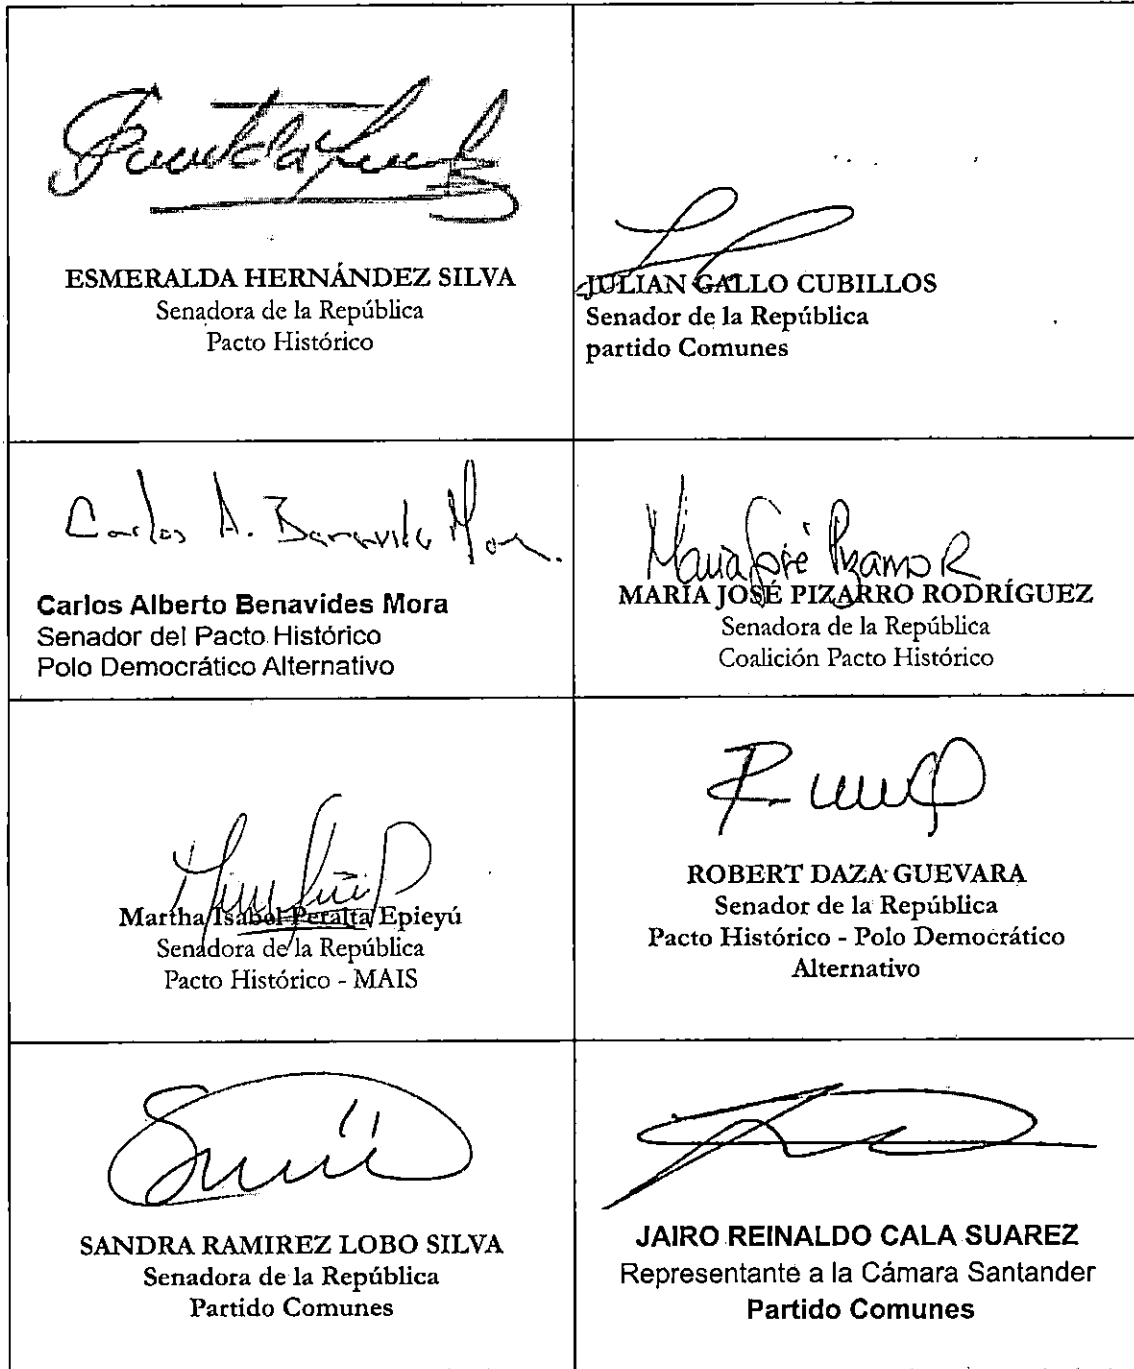 ESMERALDA HERNÁNDEZ SILVA
Senadora de la República
Pacto Histórico
JULIAN GALLO CUBILLOS
Senador de la República
partido Comunes
Carlos A. Benavides Mora
Carlos Alberto Benavides Mora
Senador del Pacto Histórico
Polo Democrático Alternativo
María José Pizarro R
MARÍA JOSÉ PIZARRO RODRÍGUEZ
Senadora de la República
Coalición Pacto Histórico
Martha Isabel Peralta Epieyú
Senadora de la República
Pacto Histórico - MAIS
ROBERT DAZA GUEVARA
Senador de la República
Pacto Histórico - Polo Democrático
Alternativo
SANDRA RAMIREZ LOBO SILVA
Senadora de la República
Partido Comunes
JAIRO REINALDO CALA SUAREZ
Representante a la Cámara Santander
Partido Comunes